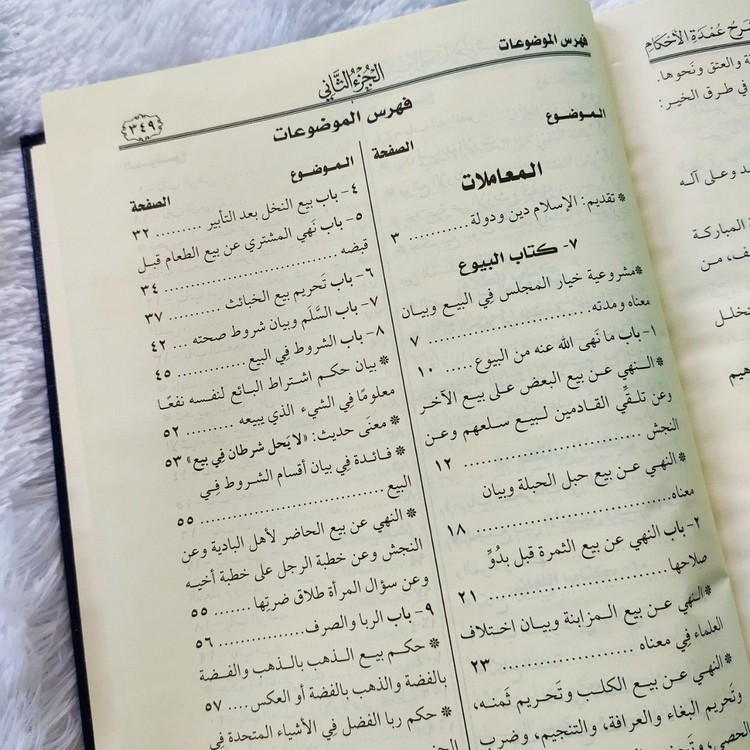 فهرس الموضوعات
الجُزءُ الثَّاني
٣٤٩
فهرس الموضوعات
الموضوع
الصفحة
المعاملات
* تقديم: الإسلام دين ودولة .......... ٣
٧- كتاب البيوع
* مشروعية خيار المجلس في البيع وبيان
معناه ومدته .......... ٧
١- باب ما نَهى الله عنه من البيوع ..... ١٠
* النهي عن بيع البعض على بيع الآخر
وعن تلقِّي القادمين لبيع سلعهم وعن
النجش .......... ١٢
* النهي عن بيع حبل الحبلة وبيان
معناه .......... ١٨
٢- باب النهي عن بيع الثمرة قبل بدُوِّ
صلاحها .......... ٢١
* النهي عن بيع المزابنة وبيان اختلاف
العلماء فِي معناه .......... ٢٣
* النهي عن بيع الكلب وتَحريم ثَمنه،
وتَحريم البغاء والعرافة، والتنجيم، وضرب
الحصى،
الموضوع
الصفحة
٤- باب بيع النخل بعد التأبير ......... ٣٢
٥- باب نَهي المشتري عن بيع الطعام قبل
قبضه .......... ٣٤
٦- باب تَحريم بيع الخبائث .......... ٣٧
٧- باب السَّلَم وبيان شروط صحته ... ٤٢
٨- باب الشروط فِي البيع .......... ٤٥
* بيان حكم اشتراط البائع لنفسه نفعًا
معلومًا فِي الشيء الذي يبيعه ........ ٥٢
* معنَى حديث: «لا يَحل شرطان فِي بيع» ٥٣
* فائدة فِي بيان أقسام الشروط فِي
البيع .......... ٥٥
* النهي عن بيع الحاضر لأهل البادية وعن
النجش وعن خطبة الرجل على خطبة أخيه
وعن سؤال المرأة طلاق ضرتِها ....... ٥٥
٩- باب الربا والصرف .......... ٥٦
* حكم بيع الذهب بالذهب والفضة
بالفضة والذهب بالفضة أو العكس .... ٥٧
* حكم ربا الفضل فِي الأشياء المتحدة فِي
شَرحُ عُمْدَةِ الأَحْكَامِ
والعتق ونَحوها.
في طرق الخير:
وعلى آله
المباركة
من